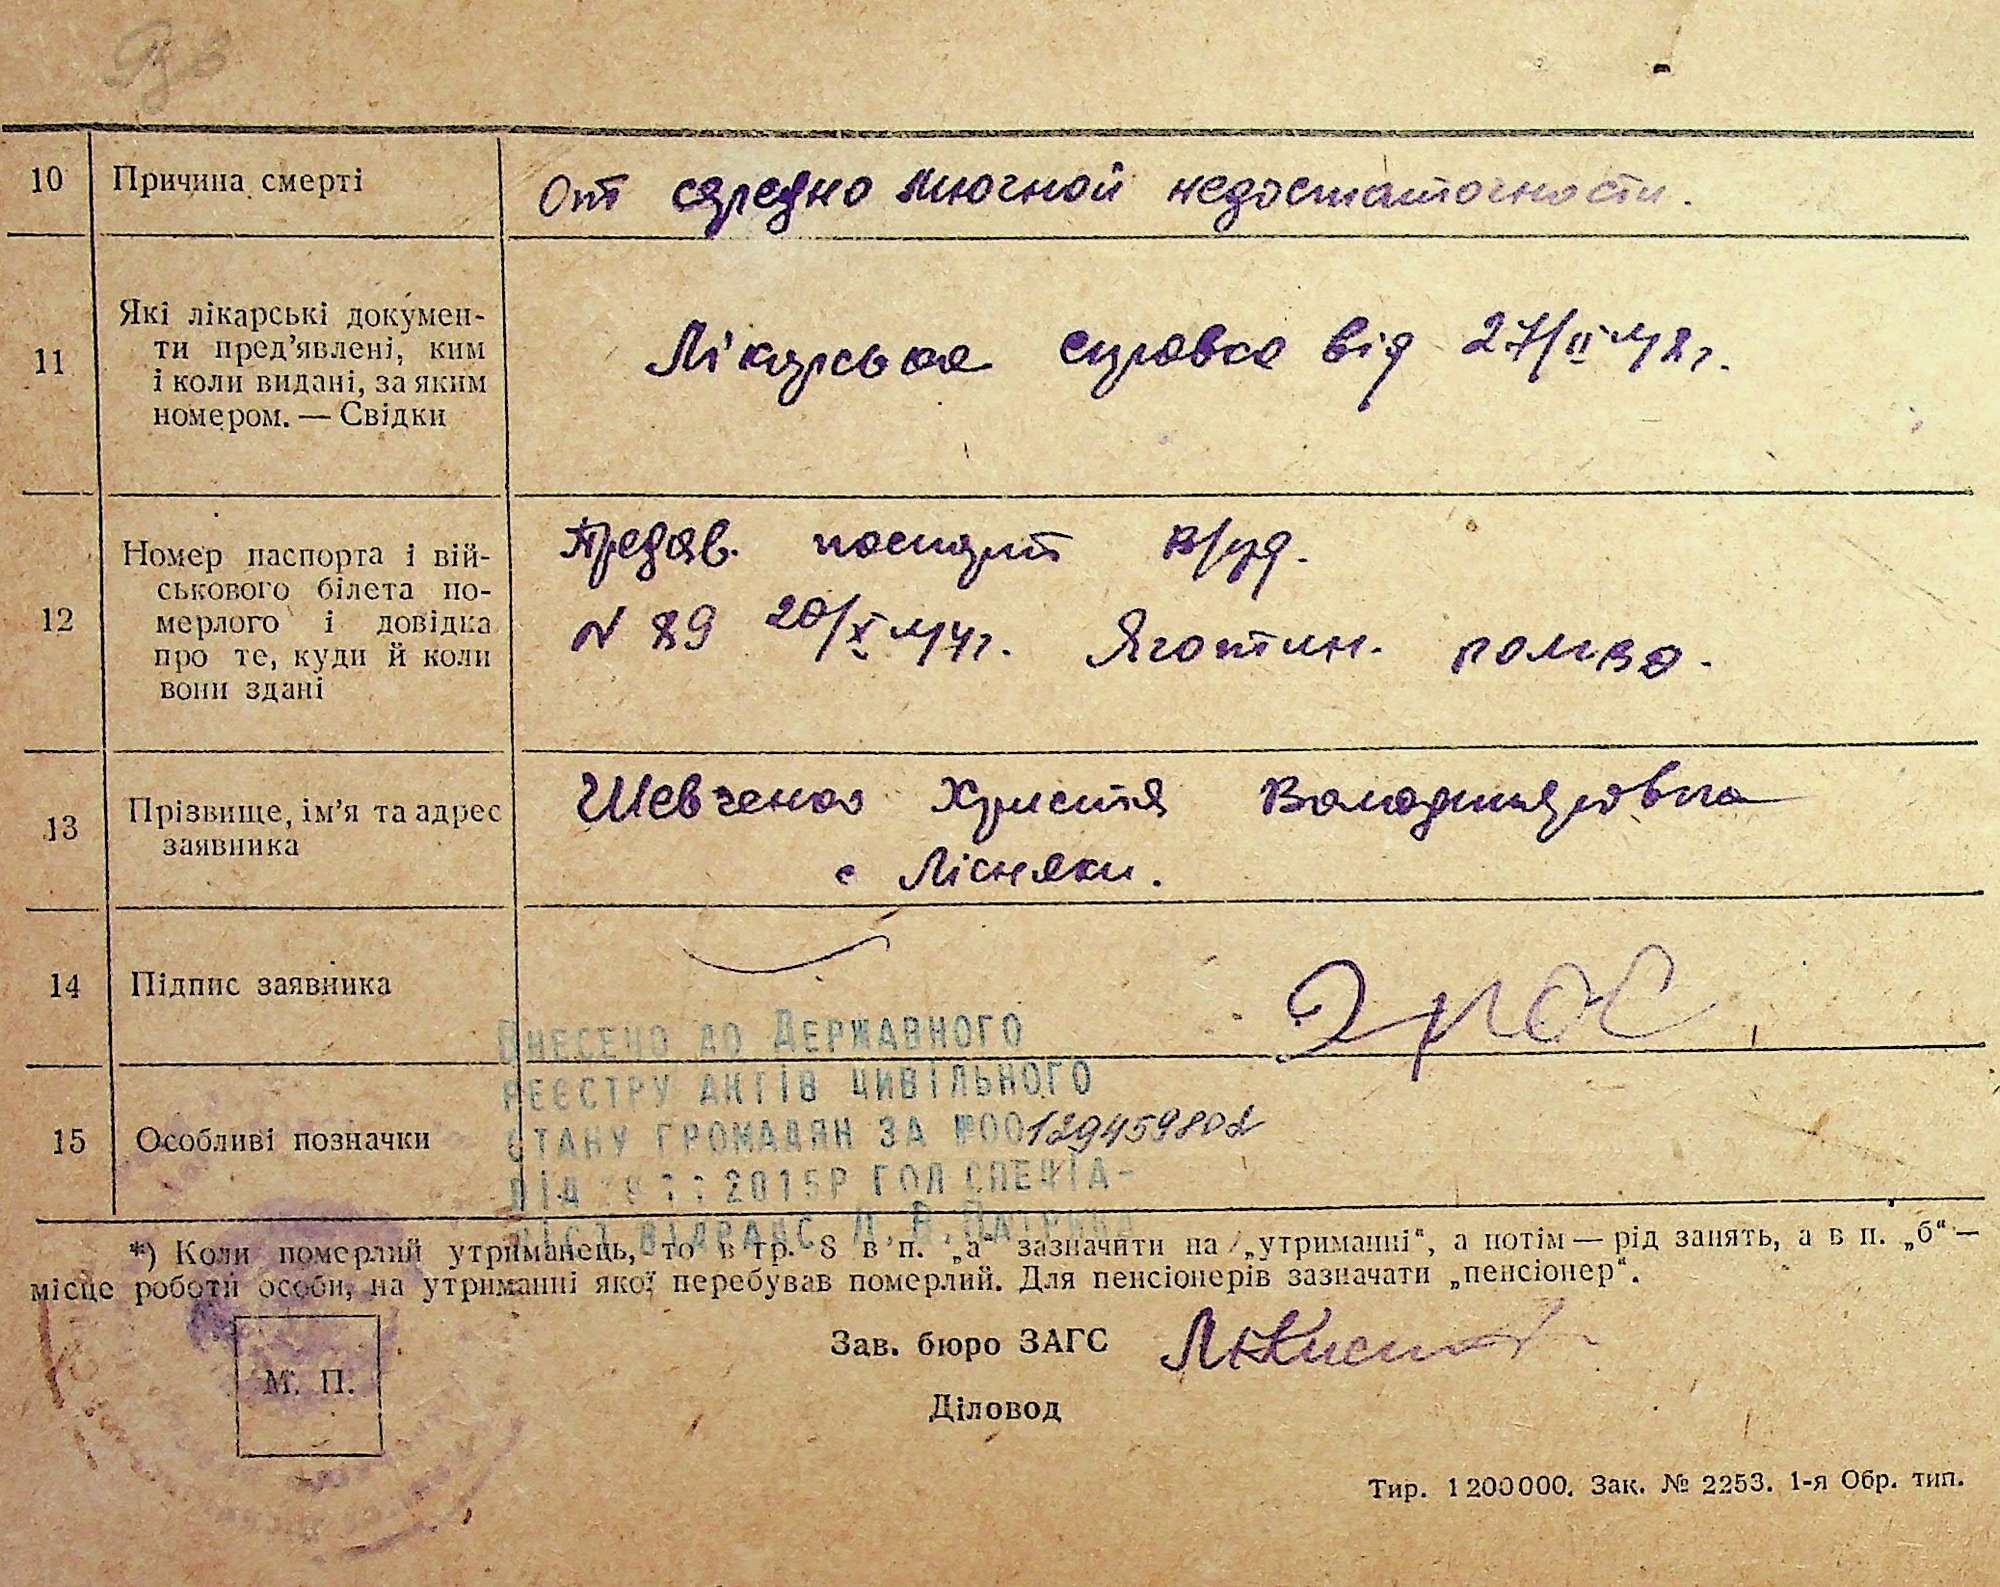 10 Причина смерті
От сердечно легочной недостаточности.
11 Які лікарські докумен-
ти пред’явлені, ким
і коли видані, за яким
номером. — Свідки
Лікарська справка від 27/II 48 г.
12 Номер паспорта і вій-
ськового білета по-
мерлого і довідка
про те, куди й коли
вони здані
Предяв. паспорт
N 89 20/X 44г. Яготин.
13 Прізвище, ім’я та адрес
заявника
Шевченко Христя Володимировна
с Лісняки.
14 Підпис заявника
15 Особливі позначки
Внесено до Державного
реєстру актів цивільного
стану громадян за №00129459802
від 2015р гол спеціа-
ліст відрацс
*) Коли померлий утриманець, то в гр. 8 в п. „а“ зазначити на „утриманні“, а потім — рід занять, а в п. „б“ —
місце роботи особи, на утриманні якої перебував померлий. Для пенсіонерів зазначати „пенсіонер“.
М. П.
Зав. бюро ЗАГС
Діловод
Тир. 1200000. Зак. № 2253. 1-я Обр. тип.